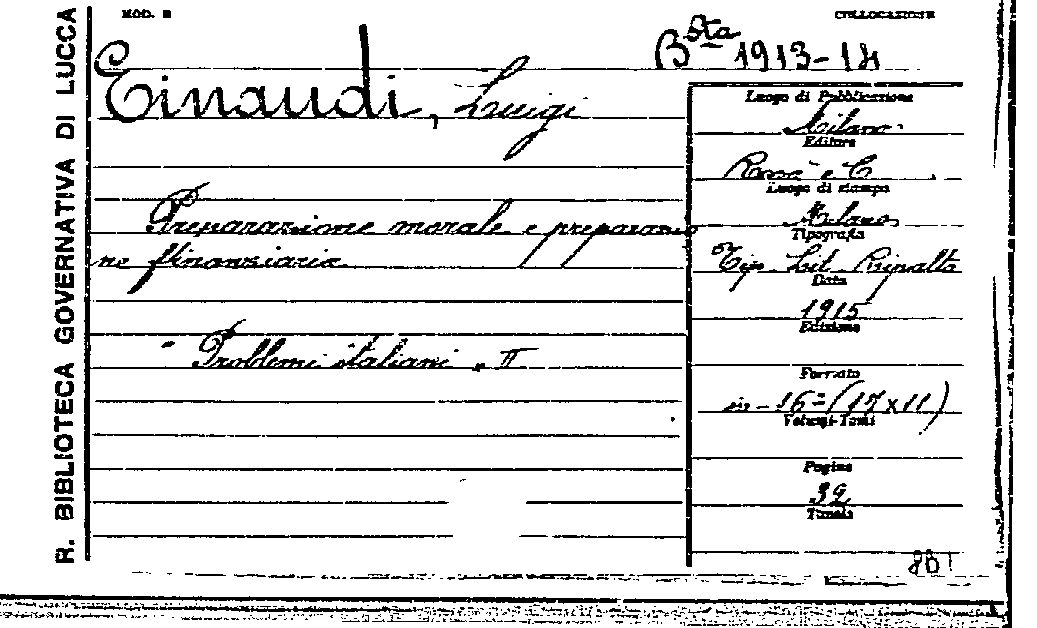 R. BIBLIOTECA GOVERNATIVA DI LUCCA
MOD. B
COLLOCAZIONE
Bsta 1913-14
Einaudi, Luigi
Preparazione morale e preparazio
ne finanziaria
" Problemi italiani " II
Luogo di Pubblicazione
Milano
Editore
Ravà e C
Luogo di stampa
Milano
Tipografia
Tip. Lit. Ripalta
Data
1915
Edizione
Formato
in - 16º (17x11)
Volumi-Tomi
Pagine
32
Tavole